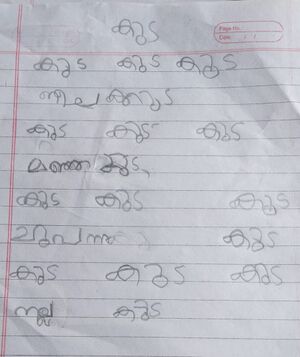 കുട
Page No.
Date: / /
കുട കുട കുട
നീല കുട
കുട കുട കുട
മഞ്ഞ കുട
കുട കുട കുട
ചുവന്ന കുട
കുട കുട കുട
നല്ല കുട